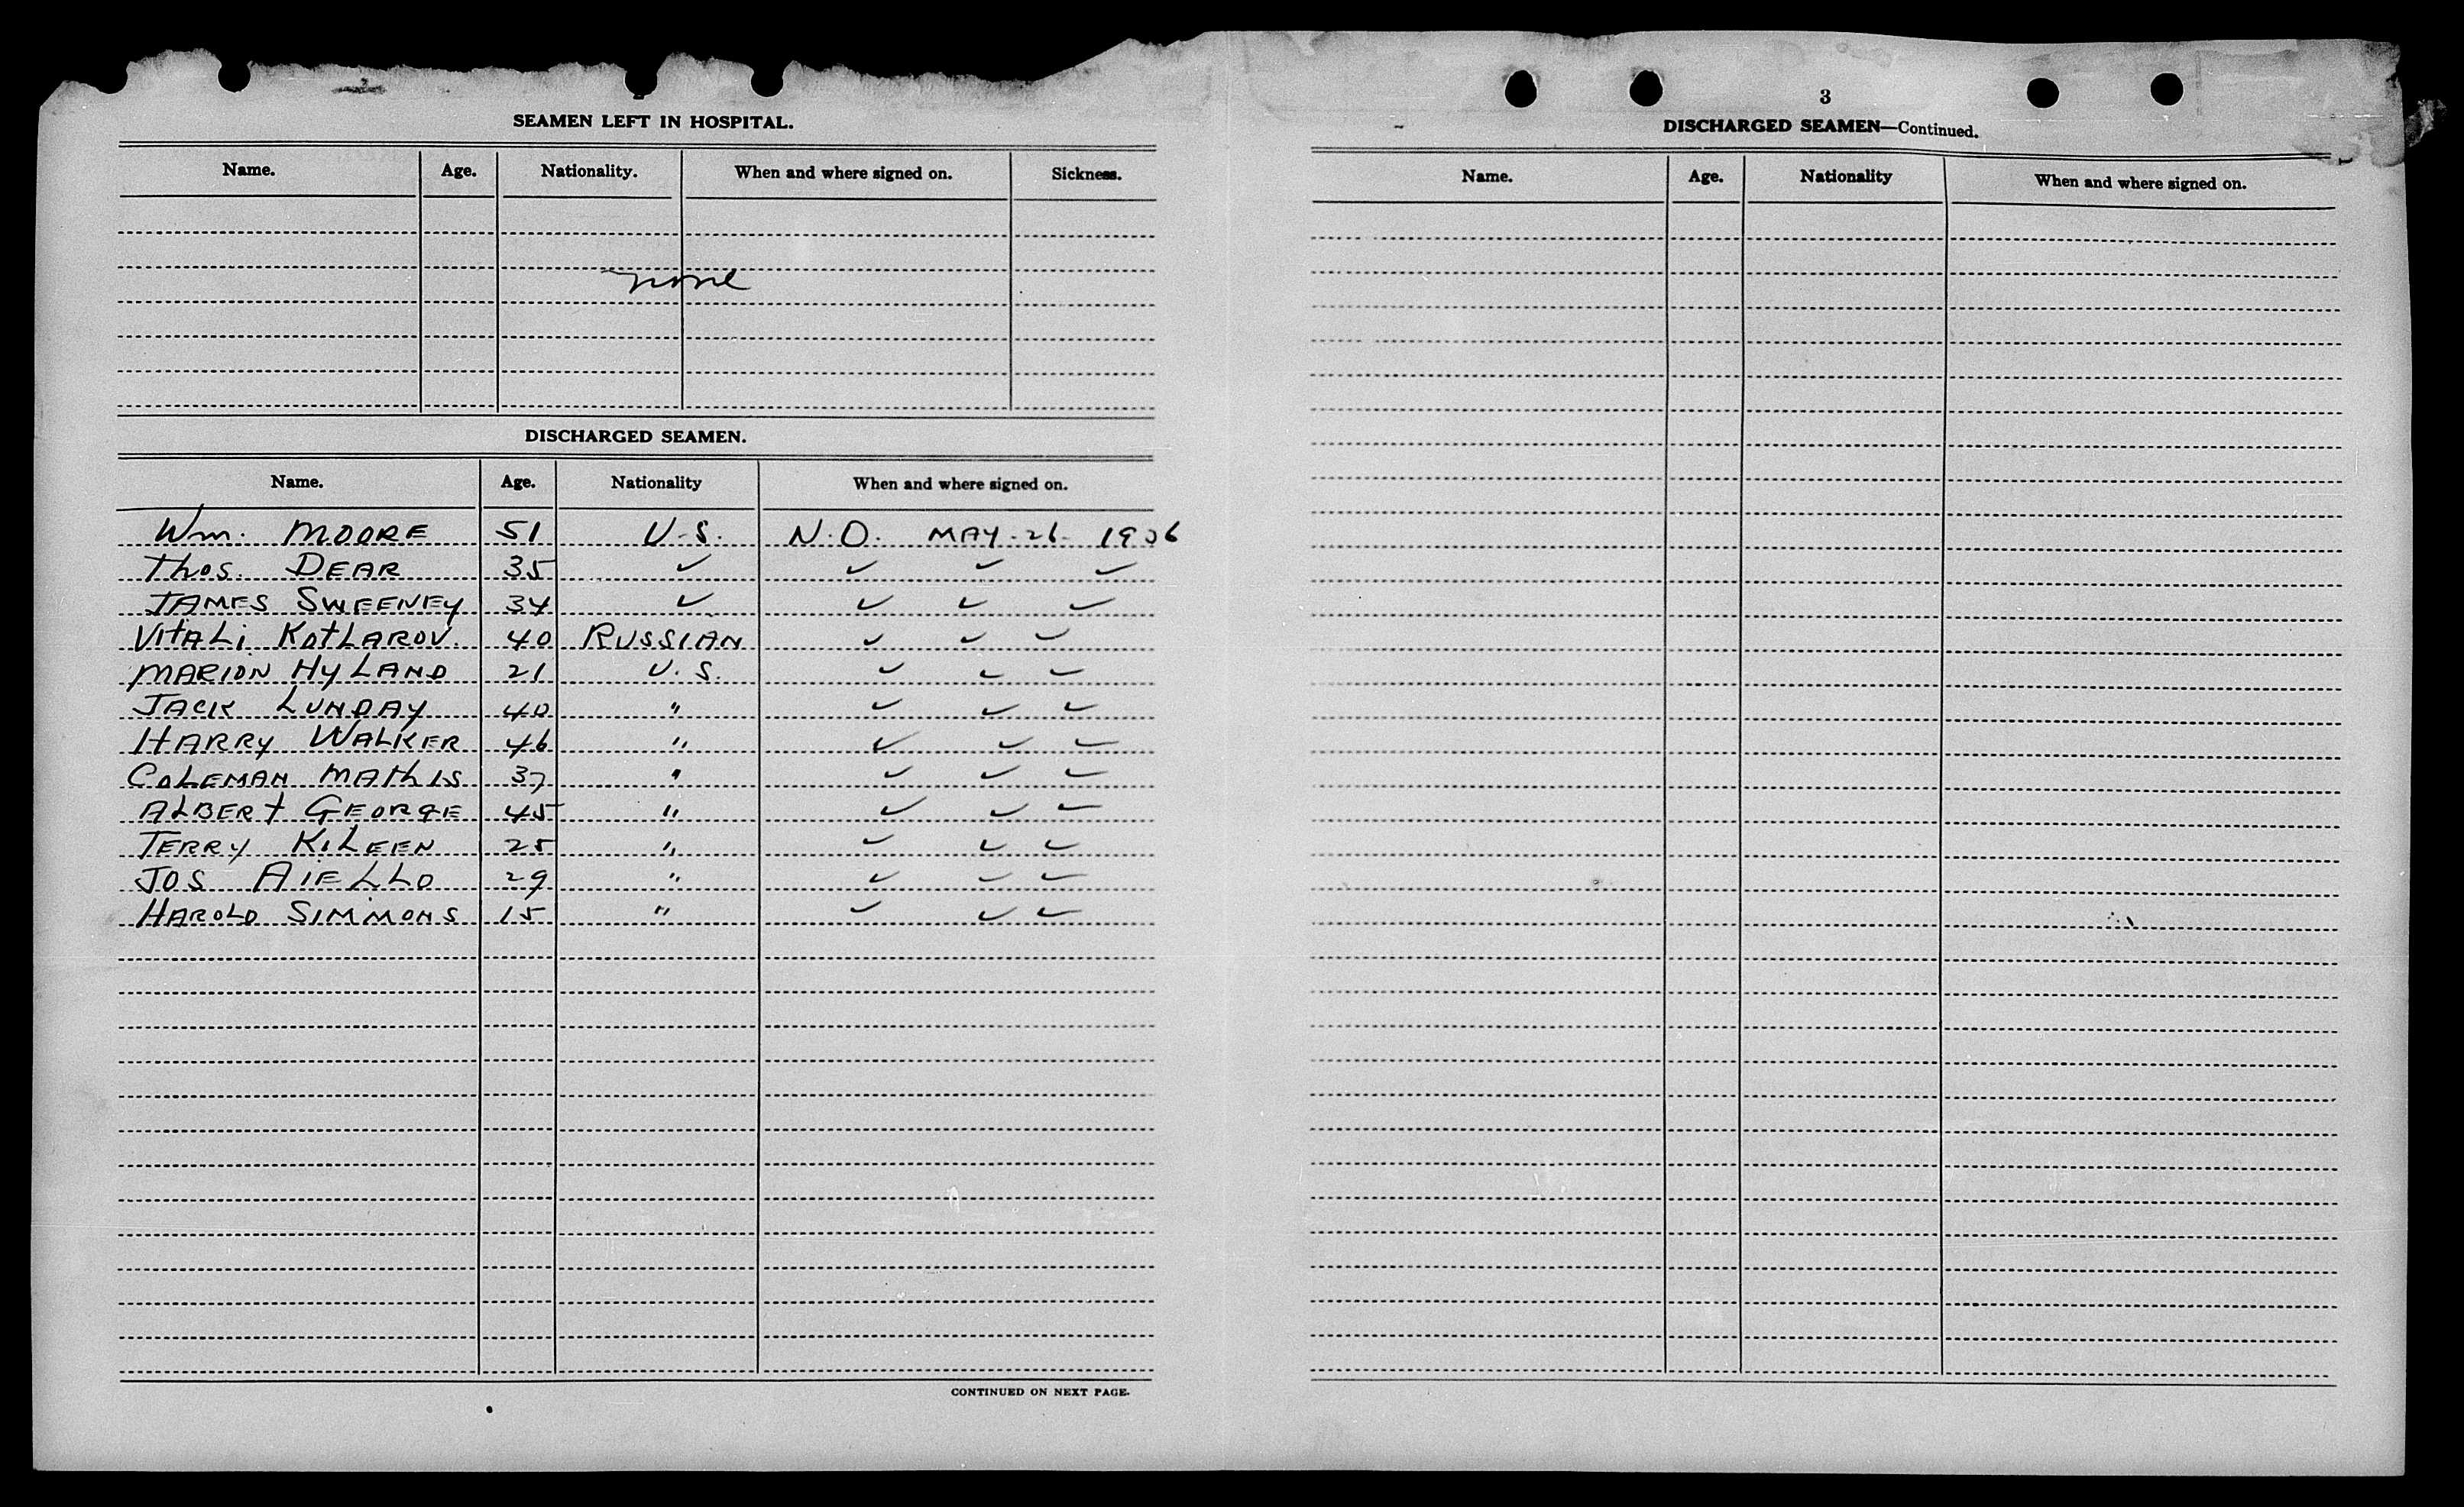 SEAMEN LEFT IN HOSPITAL.
Name. Age. Nationality. When and where signed on. Sickness.
none
DISCHARGED SEAMEN.
Name. Age. Nationality When and where signed on.
Wm. MOORE 51 U.S. N.O. MAY-26- 1936
Thos. DEAR 35 ✓ ✓ ✓ ✓
JAMES SWEENEY 34 ✓ ✓ ✓ ✓
VitALi KOtLAROV. 40 RUSSIAN ✓ ✓ ✓
MARION HyLAND 21 U.S. ✓ ✓ ✓
JACK LUNDAY 40 " ✓ ✓ ✓
HARRY WALKER 46 " ✓ ✓ ✓
COLEMAN MAthIS 37 " ✓ ✓ ✓
ALBERt GEORGE 45 " ✓ ✓ ✓
TERRY KiLEEN 25 " ✓ ✓ ✓
JOS AIELLO 29 " ✓ ✓ ✓
HAROLD SIMMONS 15 " ✓ ✓ ✓
CONTINUED ON NEXT PAGE.
3
DISCHARGED SEAMEN—Continued.
Name. Age. Nationality When and where signed on.